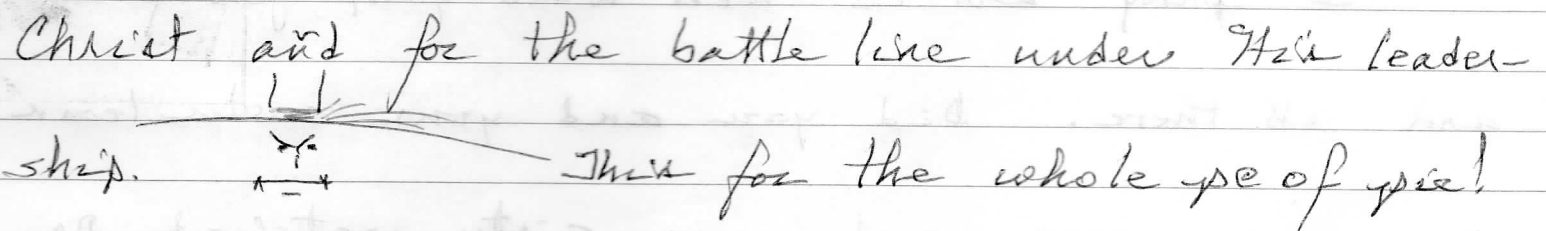 Christ and for the battle line under His leader-
ship. This for the whole pe of pie!